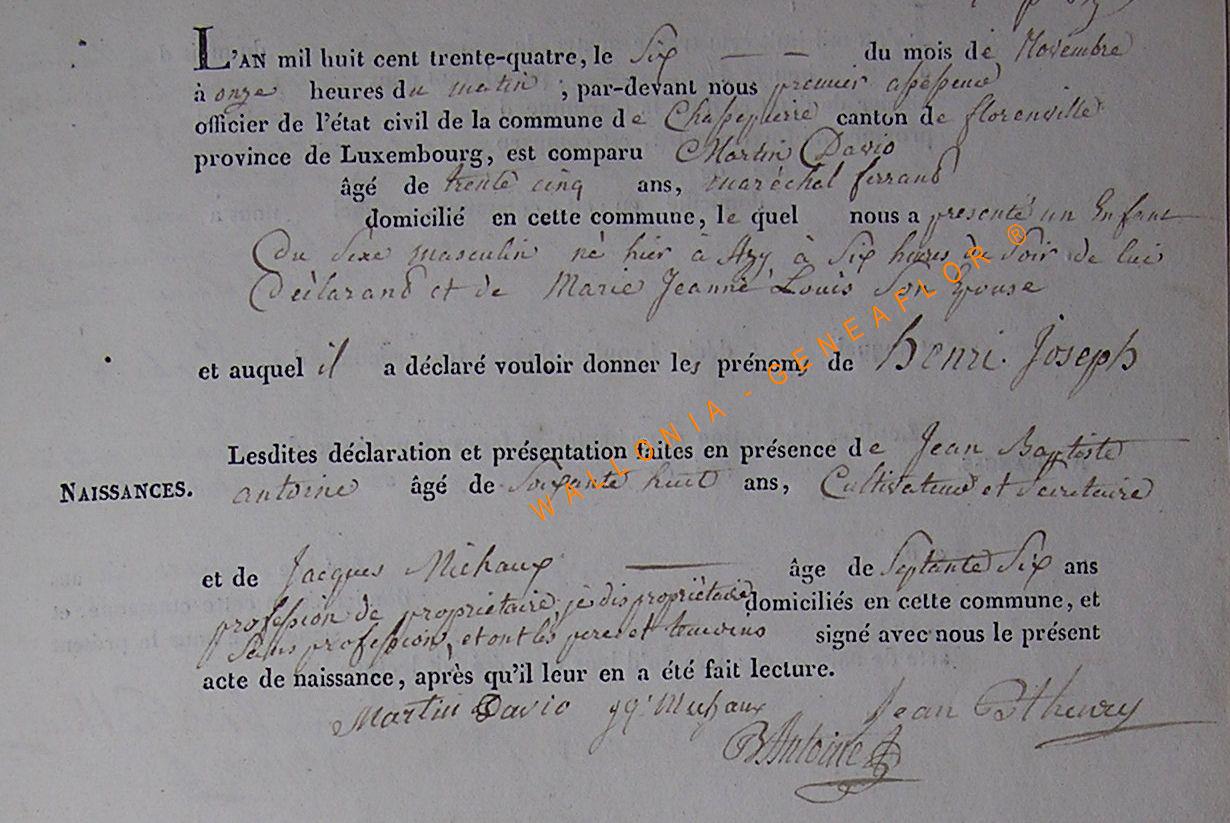 L'AN mil huit cent trente-quatre, le Six — — du mois de Novembre
à onze heures du matin ; par-devant nous premier assesseur
officier de l'état civil de la commune de Chassepierre canton de florenville
province de Luxembourg, est comparu Martin Davio
âgé de trente cinq ans, maréchal ferrand
domicilié en cette commune, le quel nous a presenté un Enfant
Du Sexe masculin né hier à Azy à Six heures du Soir de lui
Déclarand et de Marie Jeanne Louis Son Epouse
et auquel il a déclaré vouloir donner les prénoms de henri. Joseph
Lesdites déclaration et présentation faites en présence de Jean Baptiste
NAISSANCES. antoine âgé de Soixante huit ans, Cultivateur et Secretaire
et de Jacques Michaux — âge de Septante Six ans
profession de proprietaire, je dis propriétaire domiciliés en cette commune, et
Sans profession, et ont les pere et temoins signé avec nous le présent
acte de naissance, après qu'il leur en a été fait lecture.
Martin Davio Michaux Jean Bthenry
B Antoine
WALLONIA - GENEAFLOR ®